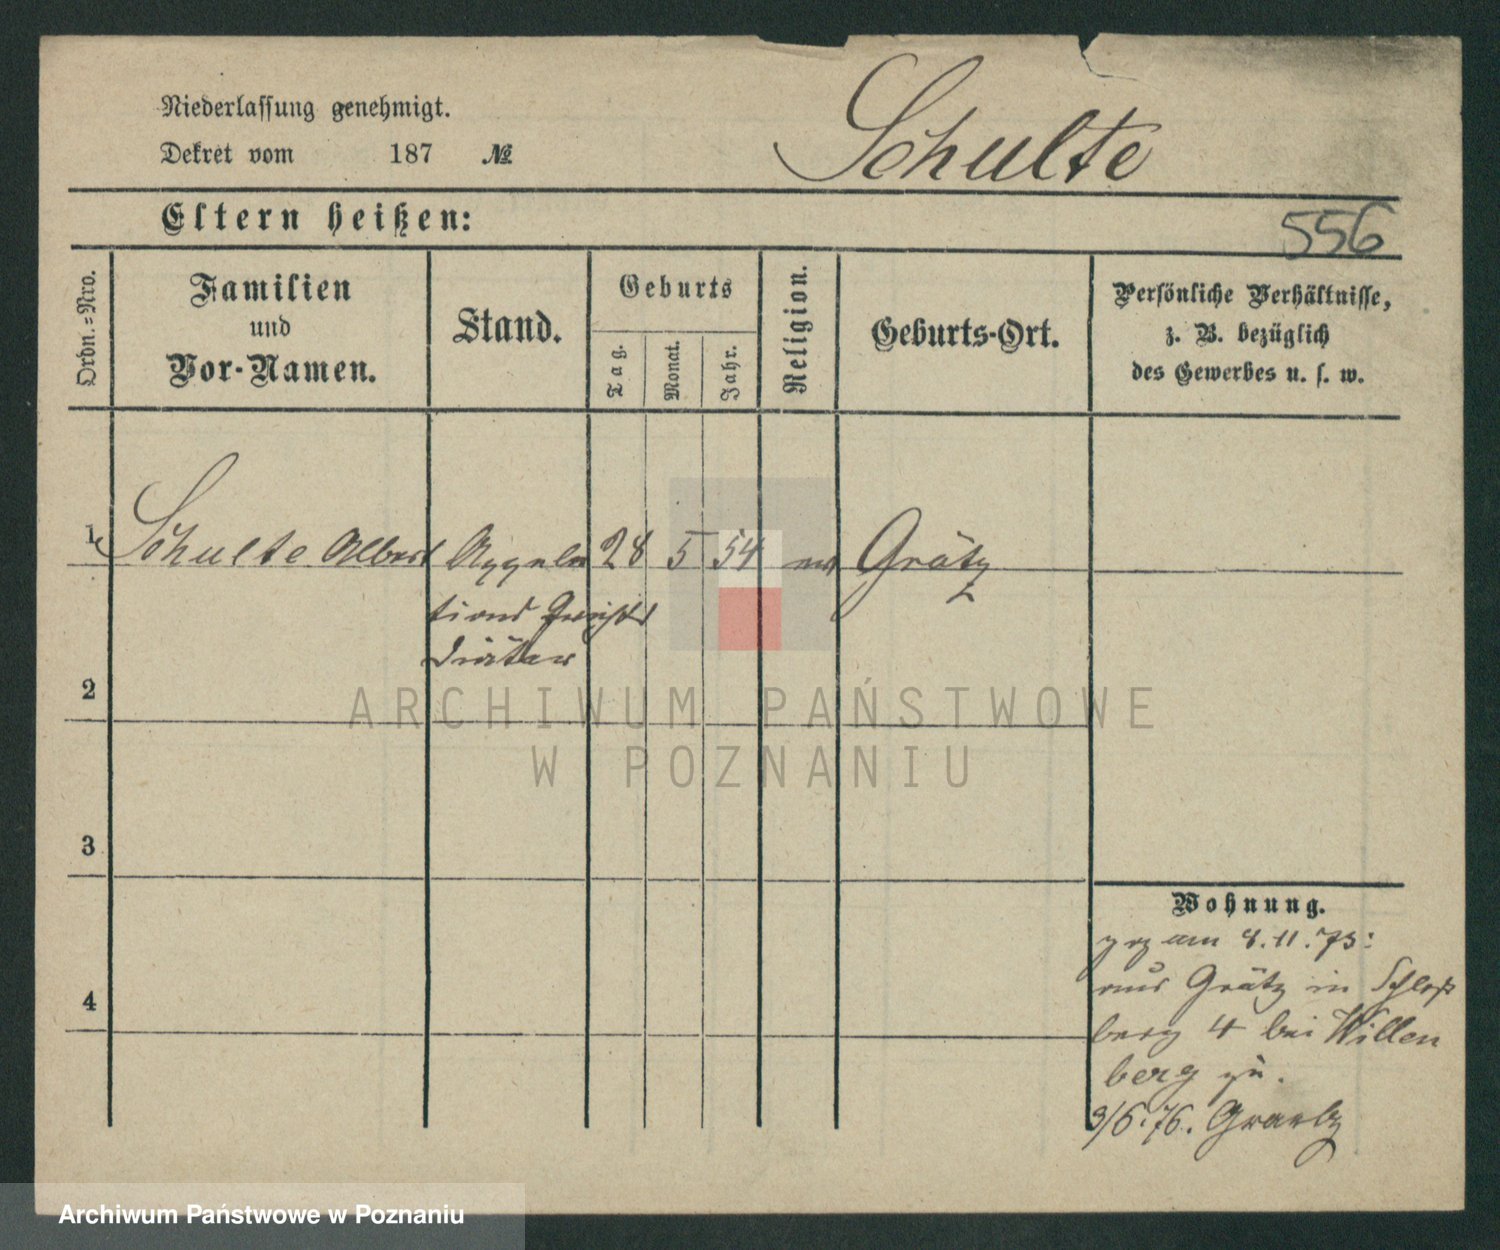 Niederlassung genehmigt.
Schulte
Dekret vom 187 №
Eltern heißen:
556
Ordn.=Nro.
Familien
und
Vor-Namen.
Stand.
Geburts
Tag.
Monat.
Jahr.
Religion.
Geburts-Ort.
Persönliche Verhältnisse,
z. B. bezüglich
des Gewerbes u. s. w.
1 Schulte Albert Appella 28 5 54 Grätz
tions Gerichts
Diätar
2
ARCHIWUM PAŃSTWOWE
W POZNANIU
3
4
Wohnung.
am 8.11.75:
aus Grätz in Schloß
berg 4 bei Willen
berg zu.
3/6.76. Graetz
Archiwum Państwowe w Poznaniu